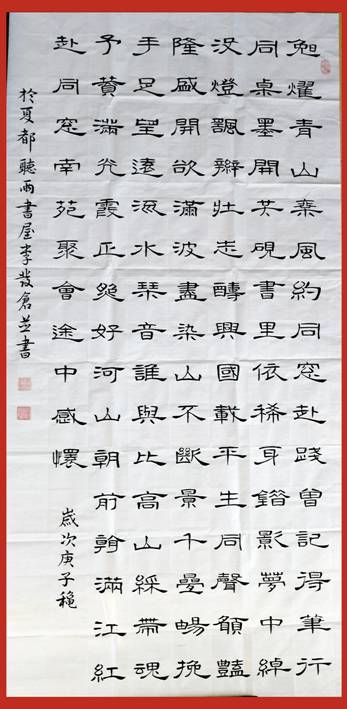 旭耀青山乘風約同窓赴踐曾記得筆行
同桌墨開共硯書里依稀身影夢中綽
燈諷辯壯志酬興國載平生同聲額豔
隆盛開欲滿波盡染山不斷景千疊暢挽
手足望遠海水琴音誰與比高山綵帶魂
予贊滿光霞正好河山朝前翰滿江紅
赴同窓南苑聚會途中感懷
歲次庚子龝
於夏都聽雨書屋李發倉並書